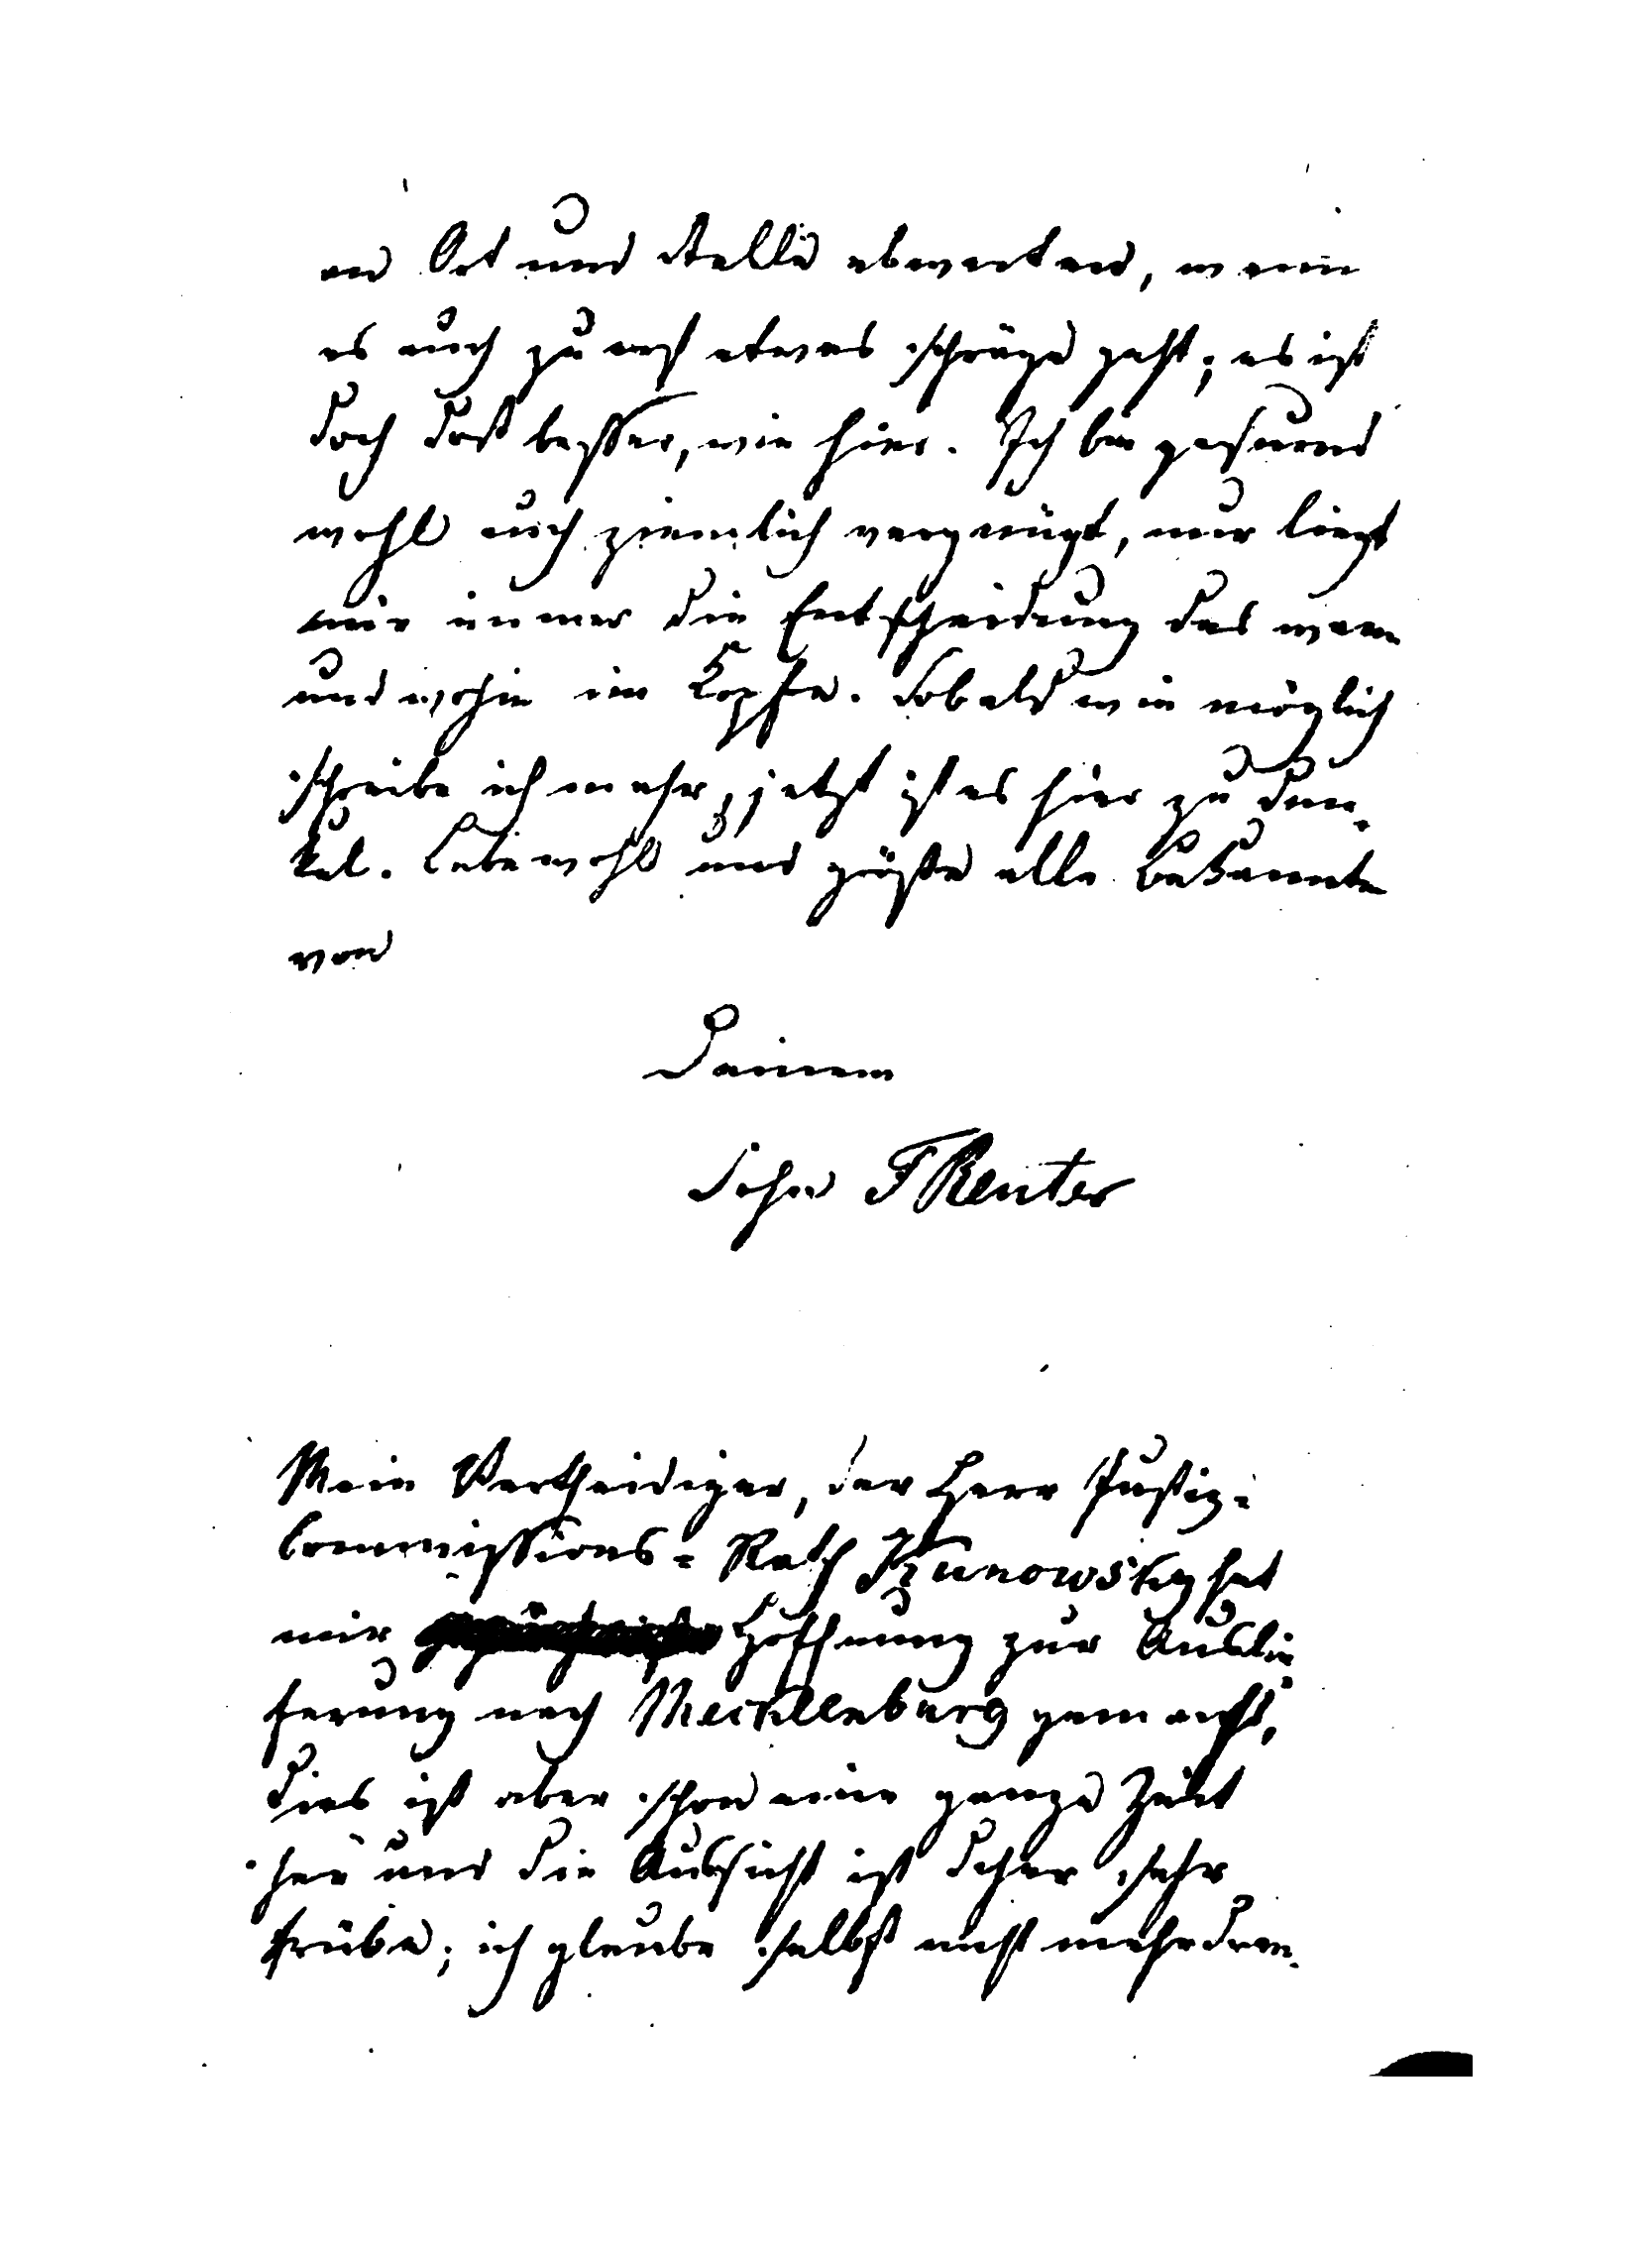 an Ort und Stelle abwarten, wenn
es auch zuerst etwas schräge geht; es ist
doch dort besser, wie hier. Ich bin gesund
wohl auch ziemlich vergnügt, nur liegt
mir immer die Entscheidung des wann
und wohin im Kopfe. Sobald wie möglich
schreibe ich mehr, jetzt ist es hier zu dun-
kel. Lebe wohl und grüße alle Bekannte
von
Deinem
Sohn F Reuter
Mein Vertheidiger, der Herr Justiz-
Commissions-Rath Kunowsky hat
mir Hoffnung zur Auslie
ferung nach Mecklenburg gemacht,
dies ist aber schon eine ganze Zeit
her und die Aussicht ist daher sehr
trübe; ich glaube selbst nicht mehr dran.